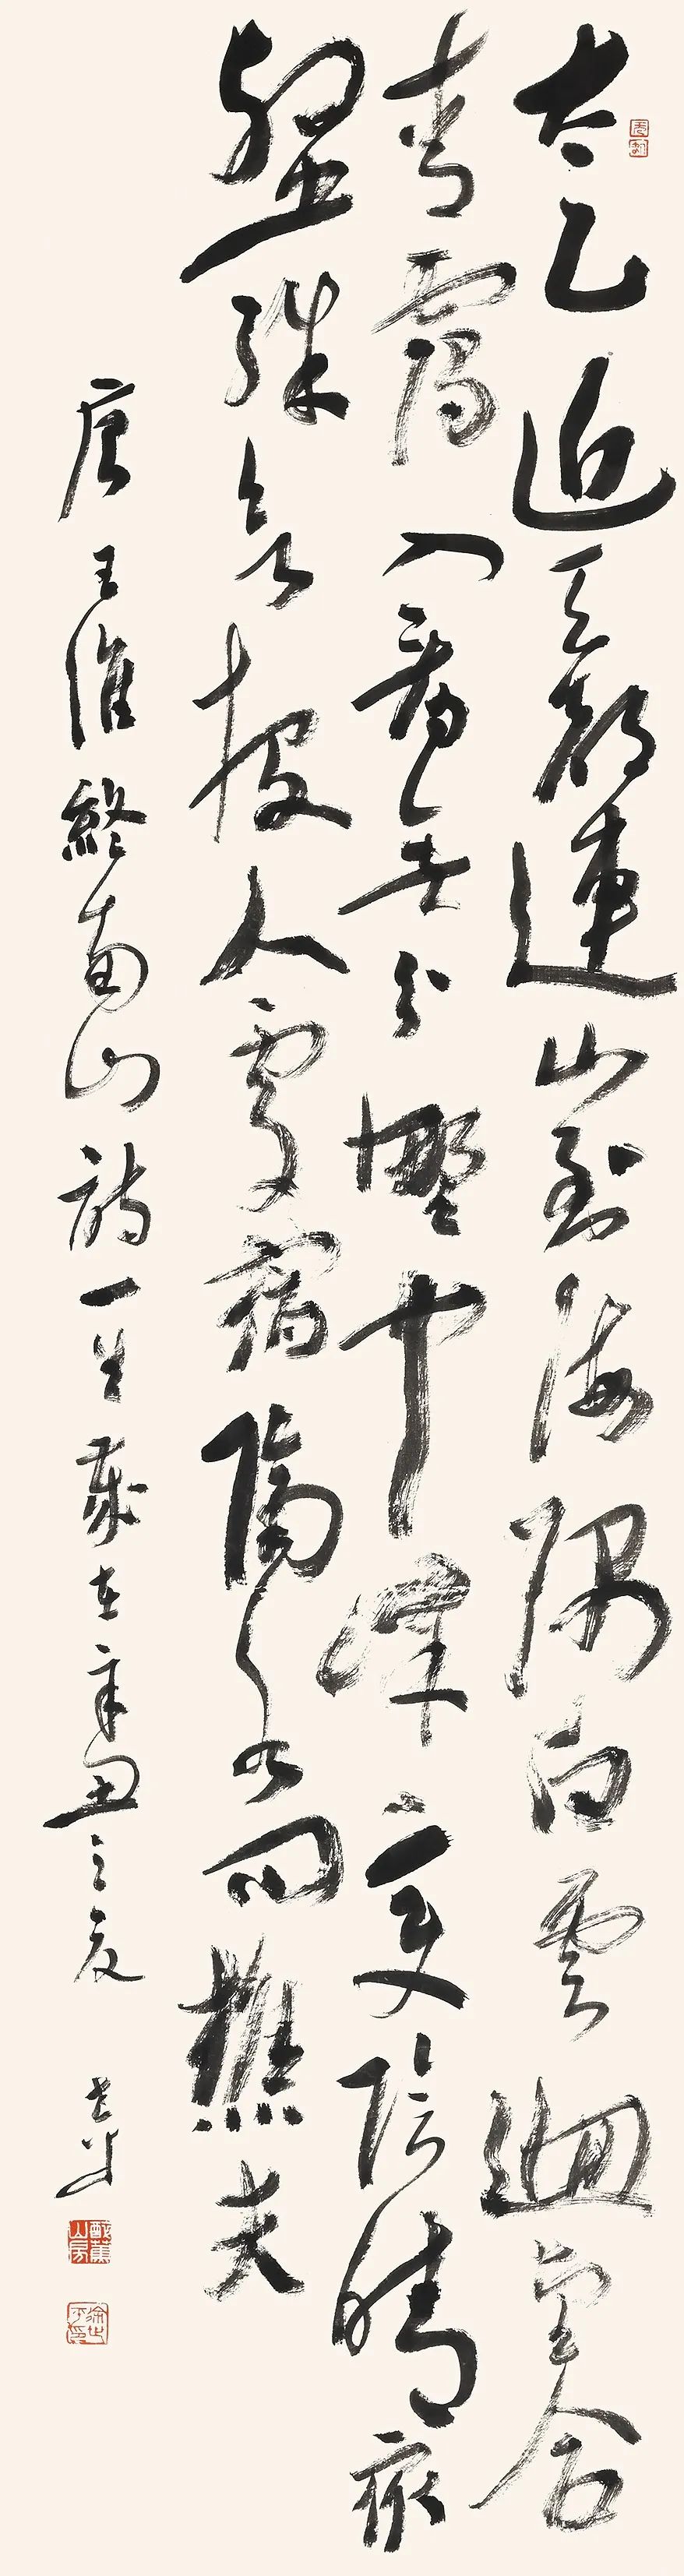 太乙近天都連山到海隅白雲迴望合
青靄入看無分壄中峰變陰晴衆
壑殊欲投人處宿隔水問樵夫
唐王維終南山詩一首歲在辛丑之夏 世平